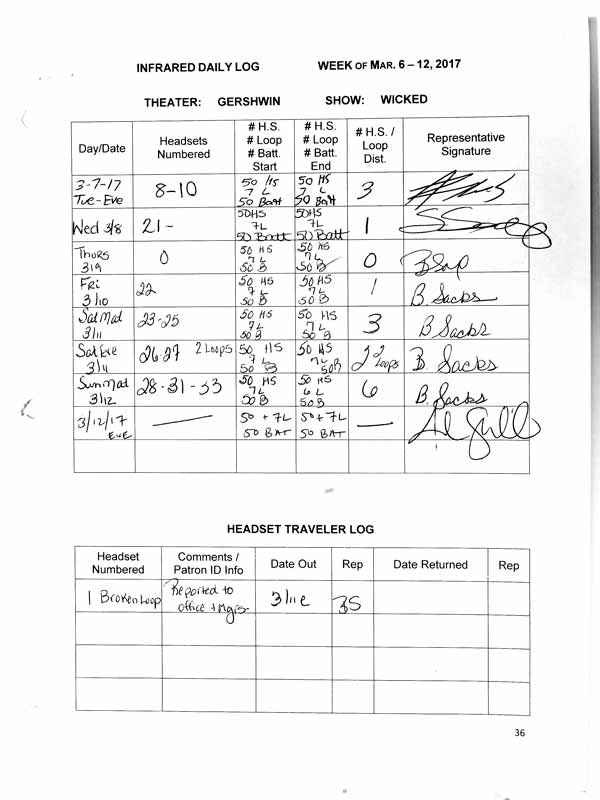 INFRARED DAILY LOG WEEK OF MAR. 6 – 12, 2017
THEATER: GERSHWIN SHOW: WICKED
Day/Date
Headsets
Numbered
# H.S.
# Loop
# Batt.
Start
# H.S.
# Loop
# Batt.
End
# H.S. /
Loop
Dist.
Representative
Signature
3-7-17
Tue-Eve
8-10
50 HS
7 L
50 Batt
50 HS
7 L
50 Batt
3
Wed 3/8
21-
50HS
7L
50 Batt
50HS
7L
50 Batt
1
Thurs
3/9
0
50 HS
7L
50 B
50 HS
7L
50 B
0
Fri
3/10
22
50 HS
7 L
50 B
50 HS
7L
50 B
1
B. Sacks
Sat Mat
3/11
23-25
50 HS
7L
50 B
50 HS
7 L
50 B
3
B Sacks
Sat Eve
3/11
26-27 2 Loops
50 HS
7L
50 B
50 HS
7L
50B
2 2 Loops
B. Sacks
Sun Mat
3/12
28-31-33
50 HS
7L
50B
50 HS
6 L
50B
6
B. Sacks
3/12/17
EVE
—
50 + 7L
50 BAT
50 + 7L
50 BAT
—
HEADSET TRAVELER LOG
Headset
Numbered
Comments /
Patron ID Info
Date Out
Rep
Date Returned
Rep
1 Broken Loop
Reported to
office + Mgrs
3/11 e
BS
36